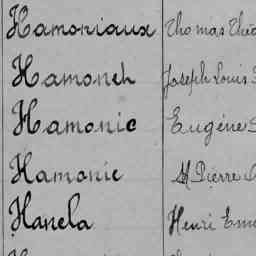 Hamoniaux Thomas Théo
Hamoneh Joseph Louis
Hamonic Eugène
Hamonic M Pierre
Hanela Henri Em